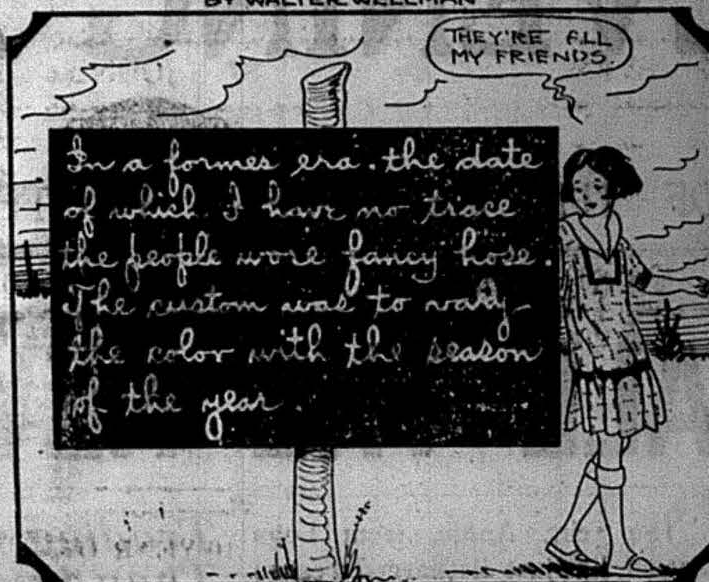 BY WALTER WELLMAN
THEY'RE ALL
MY FRIENDS.
In a former era. the date
of which I have no trace
the people wore fancy hose.
The custom was to vary
the color with the season
of the year.